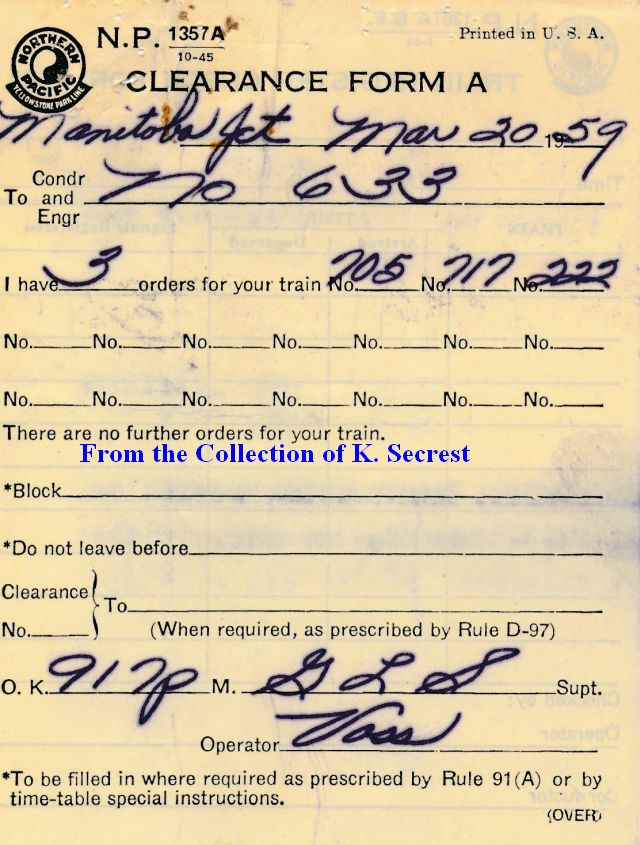 NORTHERN PACIFIC
YELLOWSTONE PARK LINE
N.P. 1357A
10-45
Printed in U. S. A.
CLEARANCE FORM A
Manitoba Jct Mar 20 1959
To Condr and Engr No 633
I have 3 orders for your train No. 705 No. 717 No. 222
No. No. No. No. No. No. No.
No. No. No. No. No. No. No.
There are no further orders for your train.
From the Collection of K. Secrest
*Block
*Do not leave before
Clearance
To
No. (When required, as prescribed by Rule D-97)
O. K. 917p M. G L S Supt.
Operator Voss
*To be filled in where required as prescribed by Rule 91(A) or by
time-table special instructions.
(OVER)